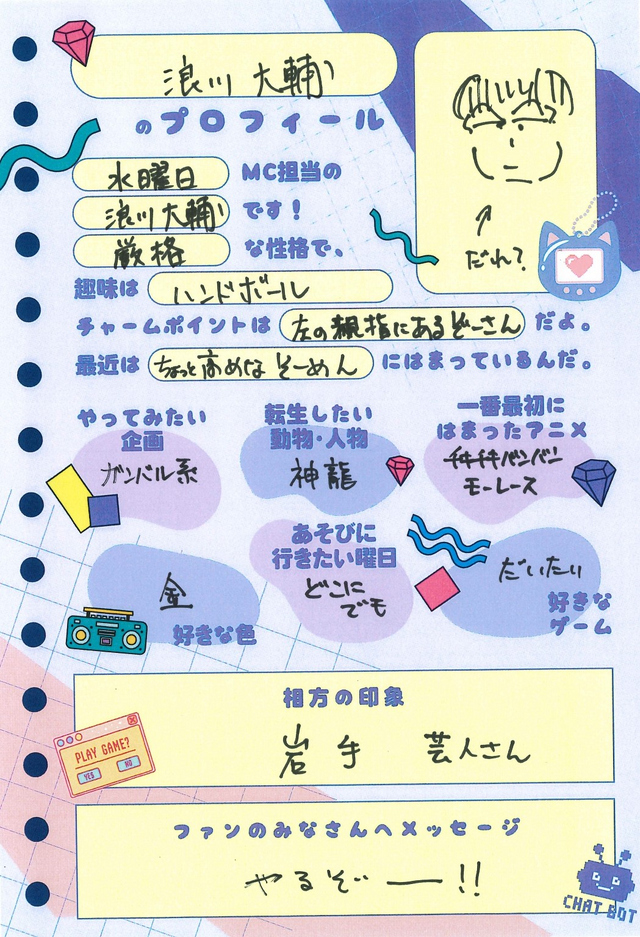 浪川 大輔
のプロフィール
水曜日 MC担当の
浪川大輔 です！
厳格 な性格で、
趣味は ハンドボール
チャームポイントは 左の親指にあるぞーさん だよ。
最近は ちょっと高めな そーめん にはまっているんだ。
だれ？
やってみたい
企画
ガンバル系
転生したい
動物・人物
神龍
一番最初に
はまったアニメ
チキチキバンバン
モーレース
金
好きな色
あそびに
行きたい曜日
どこに
でも
だいたい
好きな
ゲーム
相方の印象
岩手 芸人さん
PLAY GAME?
YES NO
ファンのみなさんへメッセージ
やるぞー!!
CHAT BOT